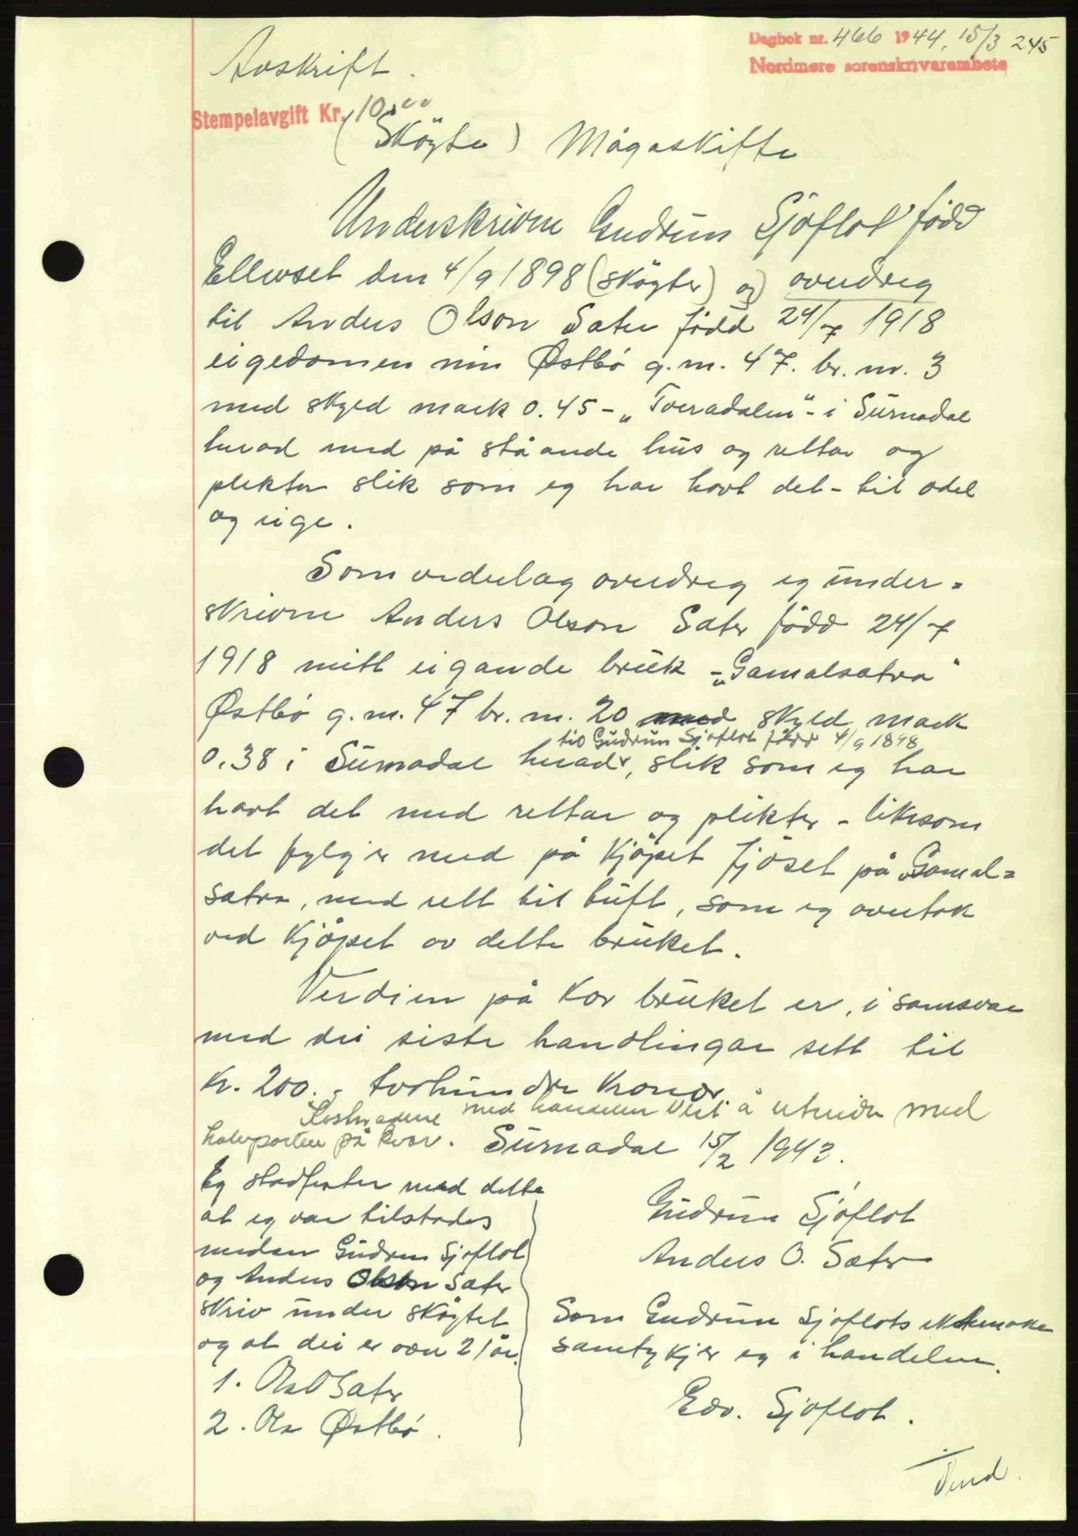 Dagbok nr. 466 1944, 15/3 245
Nordmøre sorenskrivarembete
Avskrift.
Stempelavgift Kr. 10,00
(Sköyte) Mågaskifte
Underskrivne Gudrun Sjöflot född
Ellevset den 4/9 1898 (sköyter) og overdreg
til Anders Olson Sæter född 24/7 1918
eigedomen min Østbö g.nr. 47. br. nr. 3
med skyld mark 0.45 - „Tveradalen" - i Surnadal
herad med på ståande hus og rettar og
plikter slik som eg har havt det - til odel
og eige.
Som vederlag overdreg eg under=
skrivne Anders Olson Sæter född 24/7
1918 mitt eigande bruk - „Gamalsætra"
Østbö g.nr. 47 br. nr. 20 med skyld mark
til Gudrun Sjöflot född 4/9 1898
0.38 i Surnadal herad, slik som eg har
havt det med rettar og plikter - likesom
det fylgjer med på kjöpet fjöset på „Gamal=
sætra, med rett til tuft, som eg overtok
ved kjöpet av dette bruket.
Verdien på kvar bruket er, i samsvar
med dei siste handlingar sett til
Kr. 200. - tvohundre kroner.
Kostnadene med handelen vert å utreida med
halvparten på kvar. Surnadal 15/2 1943.
Eg stadfester med dette
at eg var tilstades
medan Gudrun Sjöflot
og Anders Olson Sæter
skriv under sköytet
og at dei er over 21 år.
1. Ola O Sæter
2. Ola Østbö.
Gudrun Sjöflot
Anders O. Sæter
Som Gudrun Sjöflots ektemake
samtykkjer eg i handelen.
Edv. Sjöflot.
Vend.